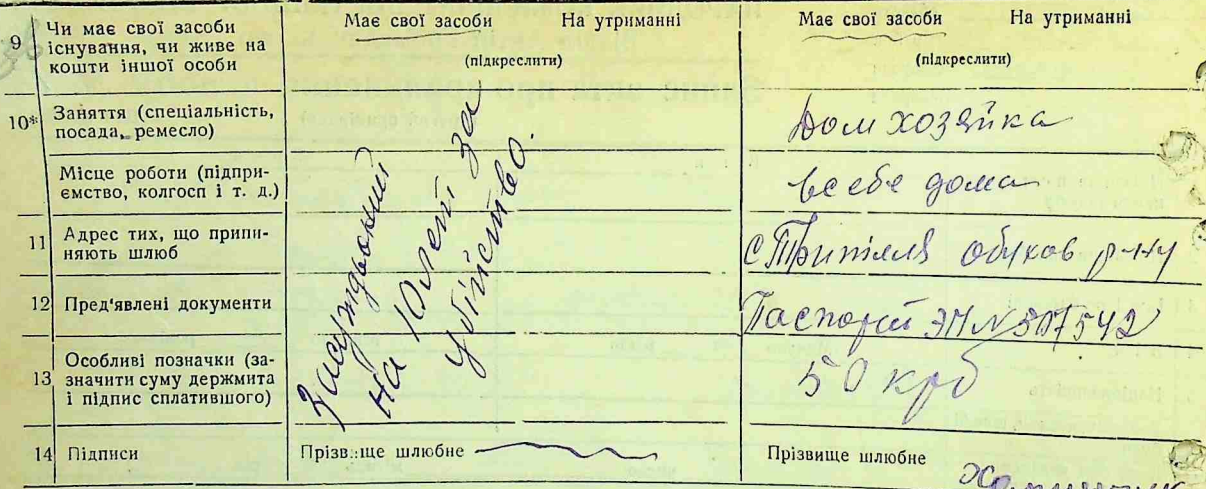 9 Чи має свої засоби існування, чи живе на кошти іншої особи
Має свої засоби На утриманні
(підкреслити)
Має свої засоби На утриманні
(підкреслити)
10* Заняття (спеціальність, посада, ремесло)
Дом хозяйка
Місце роботи (підприємство, колгосп і т. д.)
в себе дома
11 Адрес тих, що припиняють шлюб
с Трипілля обухов р-ну
12 Пред'явлені документи
Паспорт ЭМ N 507542
13 Особливі позначки (зазначити суму держмита і підпис сплатившого)
50 крб
Засуждоний
на 10 лет за
убійство.
14 Підписи
Прізвище шлюбне
Прізвище шлюбне